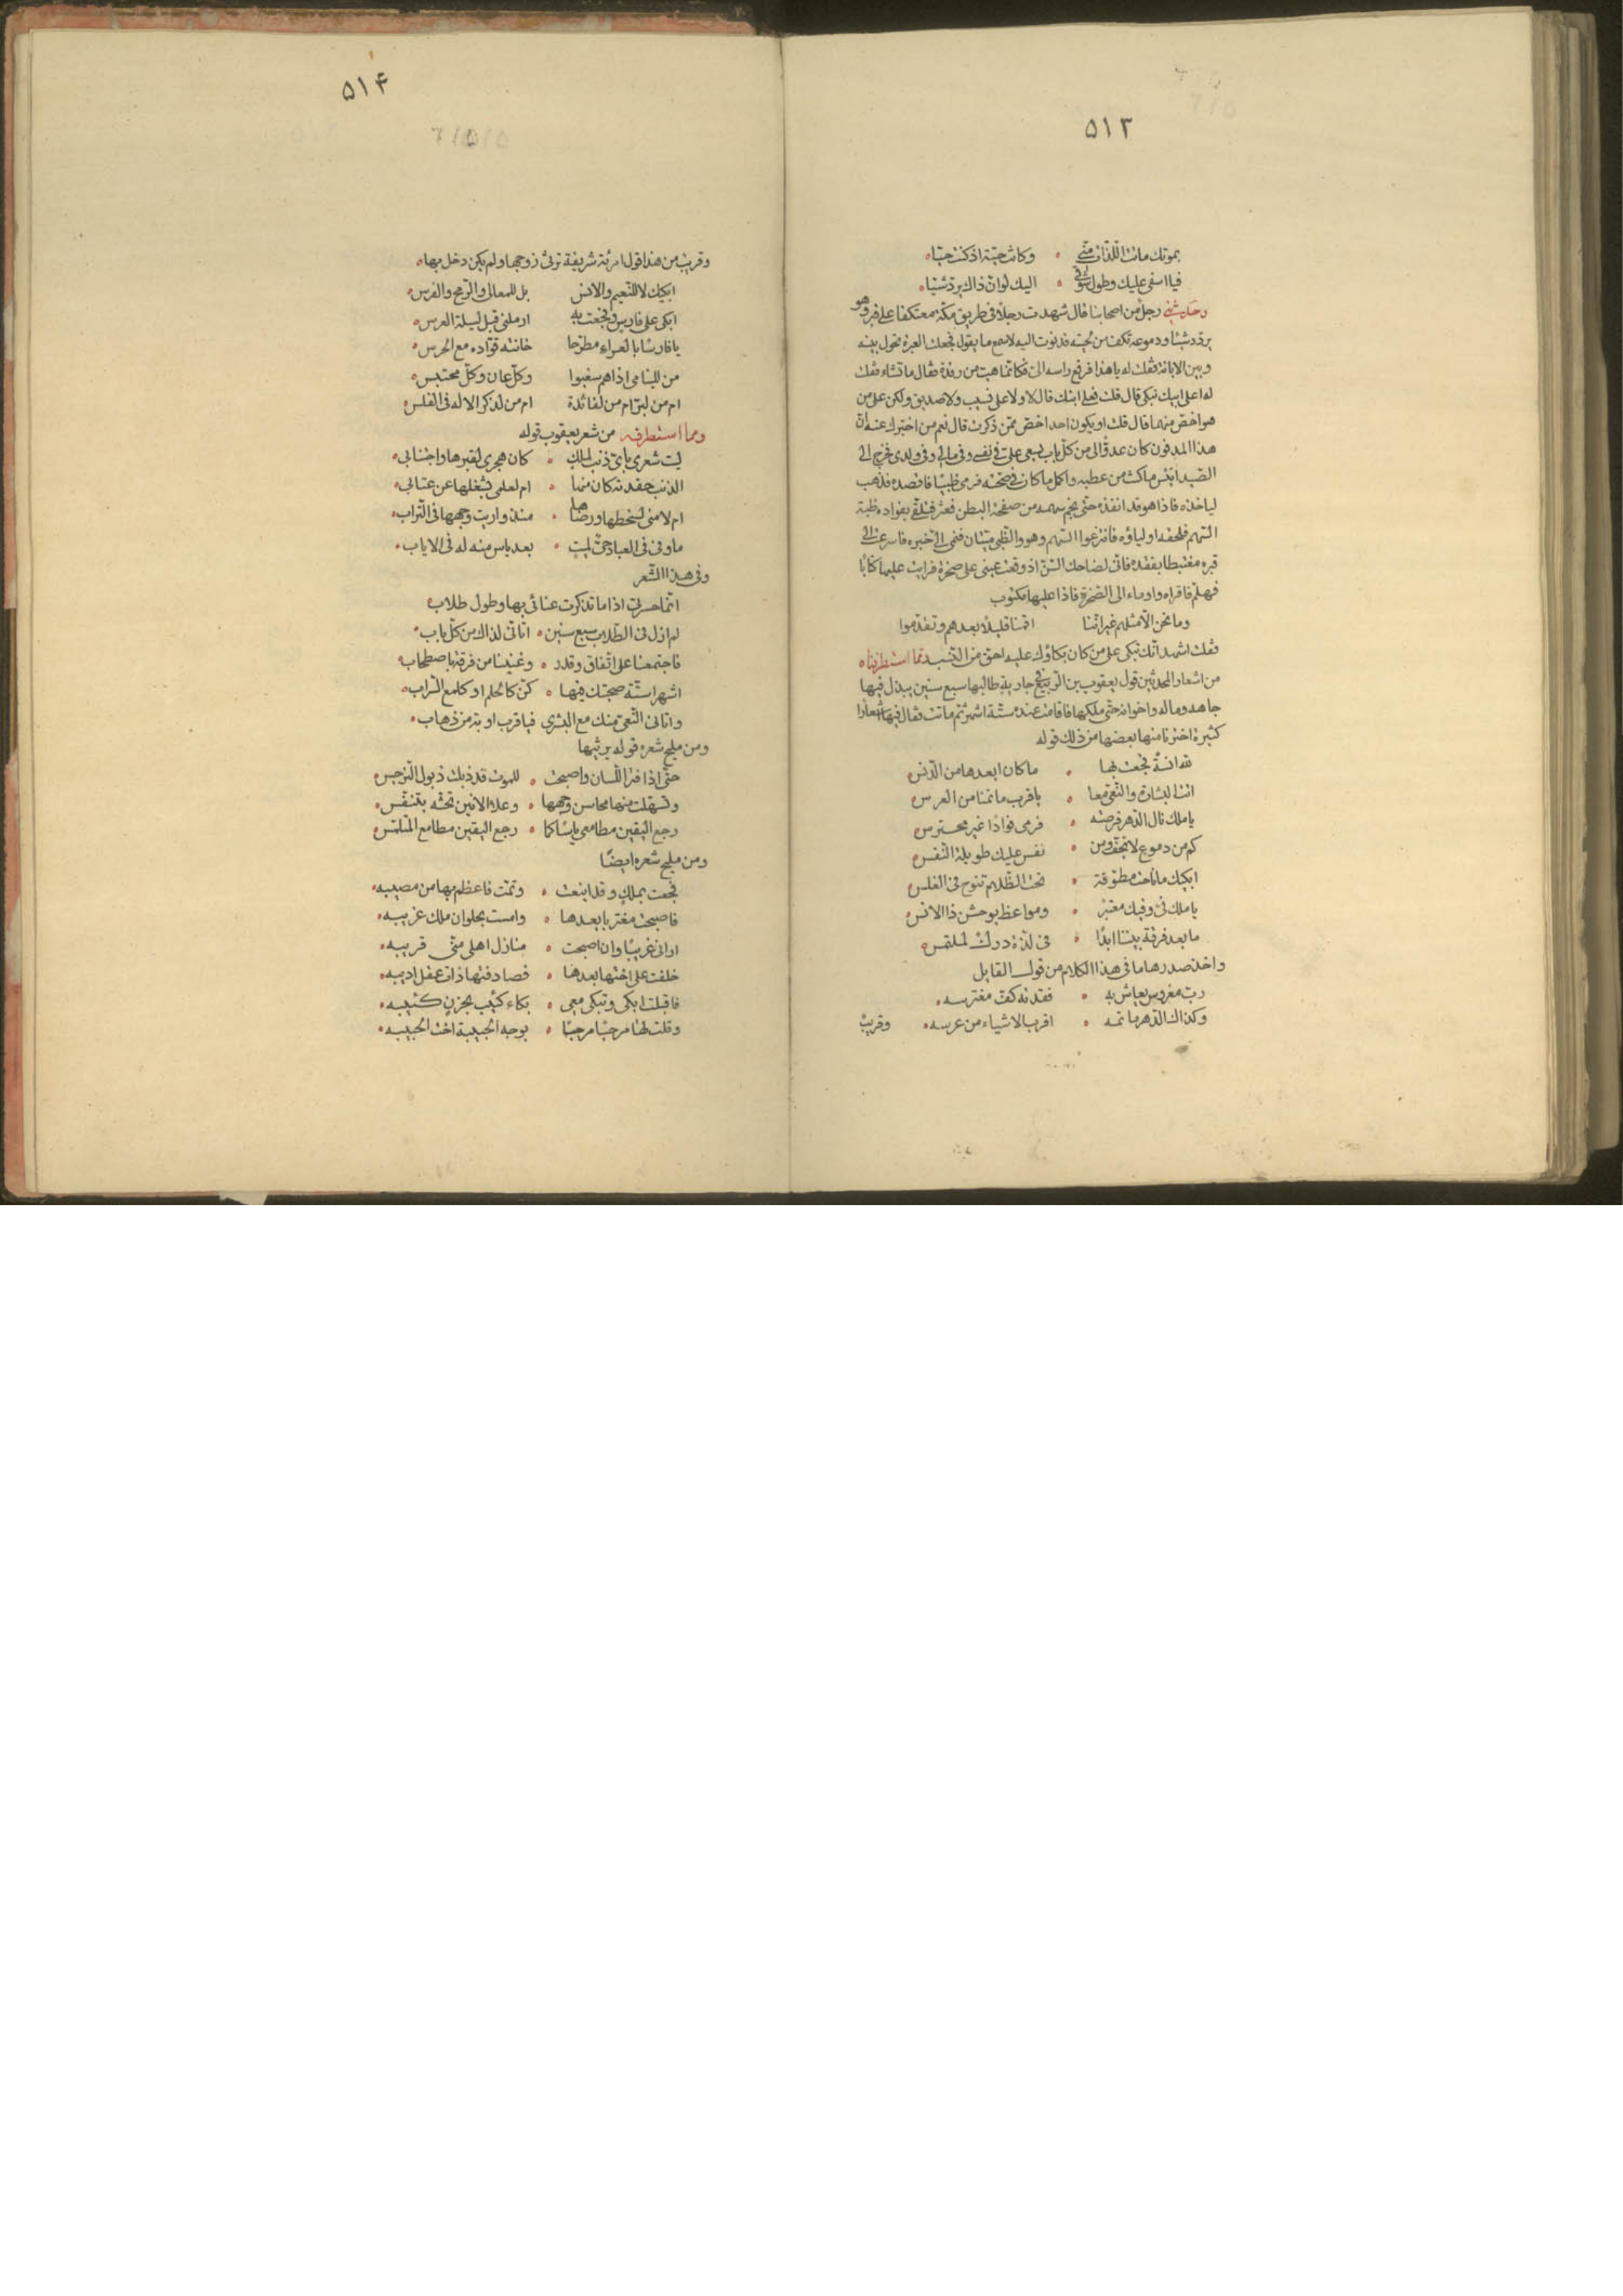 ۵۱۳
بموتك ماتت اللذات منّي وكانت حيّة اذ كنت حيّا
فيا اسفى عليك وطول شوقي اليك لو انّ ذاك يردّ شيّا
وحدّثني رجل من اصحابنا قال شهدت رجلا في طريق مكّة معتكفا على قبر وهو
يردّد شيئا ودموعه تكف من لحيته فدنوت اليه لاسمع ما يقول فجعلت العبرة تحول بينه
وبين الابانة فقلت له يا هذا فرفع راسه الىّ فكانما هبّ من رقدة فقال ما تشاء فقلت
له اعلى ابيك تبكى قال قلت فعلى ابنك قال لا ولا على نسيب ولا صديق ولكن على من
هو اخصّ منهما قال قلت او يكون احد اخصّ ممّن ذكرت قال نعم من اخبرك عنه انّ
هذا المدفون كان عدوّا لى من كلّ باب يسعى علىّ في نفسى وفى مالى وفى ولدى فخرج الى
الصّيد ايئس ما كنت من عطبه واكمل ما كان في صحّته فرمى ظبيا فاقصده فذهب
لياخذه فاذا هو قد انفذه حتى نجم سهمه من صفحة البطن فعثر فتلقّى بفواده ظبة
السّهم فلحقه اولياؤه فانتزعوا السّهم وهو والظبى ميّتان فنمى الىّ خبره فاسرعت الى
قبره مغتبطا بفقده فانّى لضاحك السّنّ اذ وقعت عينى على صخرة فرايت عليها كتابا
فهلمّ فاقراه واوماء الى الصّخرة فاذا عليها مكتوب
وما نحن الّا مثلهم غير انّنا اقمنا قليلا بعدهم وتقدّموا
فقلت اشهد انّك تبكى على من كان بكاؤك عليه احقّ من النّسيب ممّا استطرفناه
من اشعار المحدثين قول يعقوب بن الرّبيع في جارية طالبها سبع سنين يبذل فيها
جاهه وماله واخوانه حتى ملكها فاقامت عنده ستّة اشهر ثم ماتت فقال فيها اشعارا
كثيرة اخترنا منها بعضها من ذلك قوله
لله انسة فجعت بها ما كان ابعدها من الدّنس
اتت البشارة والنّعىّ معا يا قرب ماتمنا من العرس
يا ملك نال الدّهر فرصته فرمى فوادا غير محترس
كم من دموع لا تجفّ ومن نفس عليك طويلة النّفس
ابكيك ما ناحت مطوّقة تحت الظّلام تنوح في الغلس
يا ملك فىّ وفيك معتبر ومواعظ يوحشن ذا الانس
ما بعد فرقة بيننا ابدا في لذّة درك لملتمس
واخذ صدرها ما في هذا الكلام من قول القايل
ربّ مغروس يعاش به فقدته كفّ مغترسه
وكذاك الدّهر ماتمه اقرب الاشياء من عرسه
وقريب
۵۱۴
وقريب من هذا قول امرئة شريفة ترثى زوجها ولم يكن دخل بها
ابكيك لا للنّعيم والانس بل للمعالى والرّمح والفرس
ابكى على فارس فجعت به ارملنى قبل ليلة العرس
يا فارسا بالعراء مطّرحا خانته قوّاده مع الحرس
من لليتامى اذا هم سغبوا وكلّ عان وكلّ محتبس
ام من لبرّ ام من لفائدة ام من لذكر الاله فى الغلس
ومما استطرف من شعر يعقوب قوله
ليت شعرى باىّ ذنب لملك كان هجرى لقبرها واجتنابى
الذنب حقدته كان منها ام لعلمى بشغلها عن عتابى
ام لامنى لسخطها ورضاها منذ واريت وجهها فى التّراب
ما وفى فى العباد حىّ لميت بعد ياس منه له فى الاياب
وفى هذا الشّعر
انّما حسرتى اذا ما تذكرت عنائى بها وطول طلابى
لم ازل فى الطّلاب سبع سنين اتاتى لذاك من كلّ باب
فاجتمعنا على اتّفاق وقدر وغنينا من فرقة باصطحاب
اشهرا ستّة صحبتك فيها كنّ كالحلم او كلمع السّراب
واتانى النّعىّ منك مع البشرى فيا قرب اوبة من ذهاب
ومن مليح شعره قوله يرثيها
حتى اذا فتر اللّسان واصبحت للموت قد ذبلت ذبول النّرجس
وتسهّلت منها محاسن وجهها وعلا الانين تحثّه بتنفّس
رجع اليقين مطامعى ياسا كما رجع اليقين مطامع المتلمّس
ومن مليح شعره ايضا
فجعت بملك وقد اينعت وتمّت فاعظم بها من مصيبه
فاصبحت مغتربا بعدها وامست بحلوان ملك غريبه
ارانى غريبا وان اصبحت منازل اهلى منّى قريبه
خلفت على اختها بعدها فصادفتها ذات عقل اديبه
فاقبلت ابكى وتبكى معى بكاء كئيب بحزن كئيبه
وقلت لها مرحبا مرحبا بوجه الحبيبة اخت الحبيبه